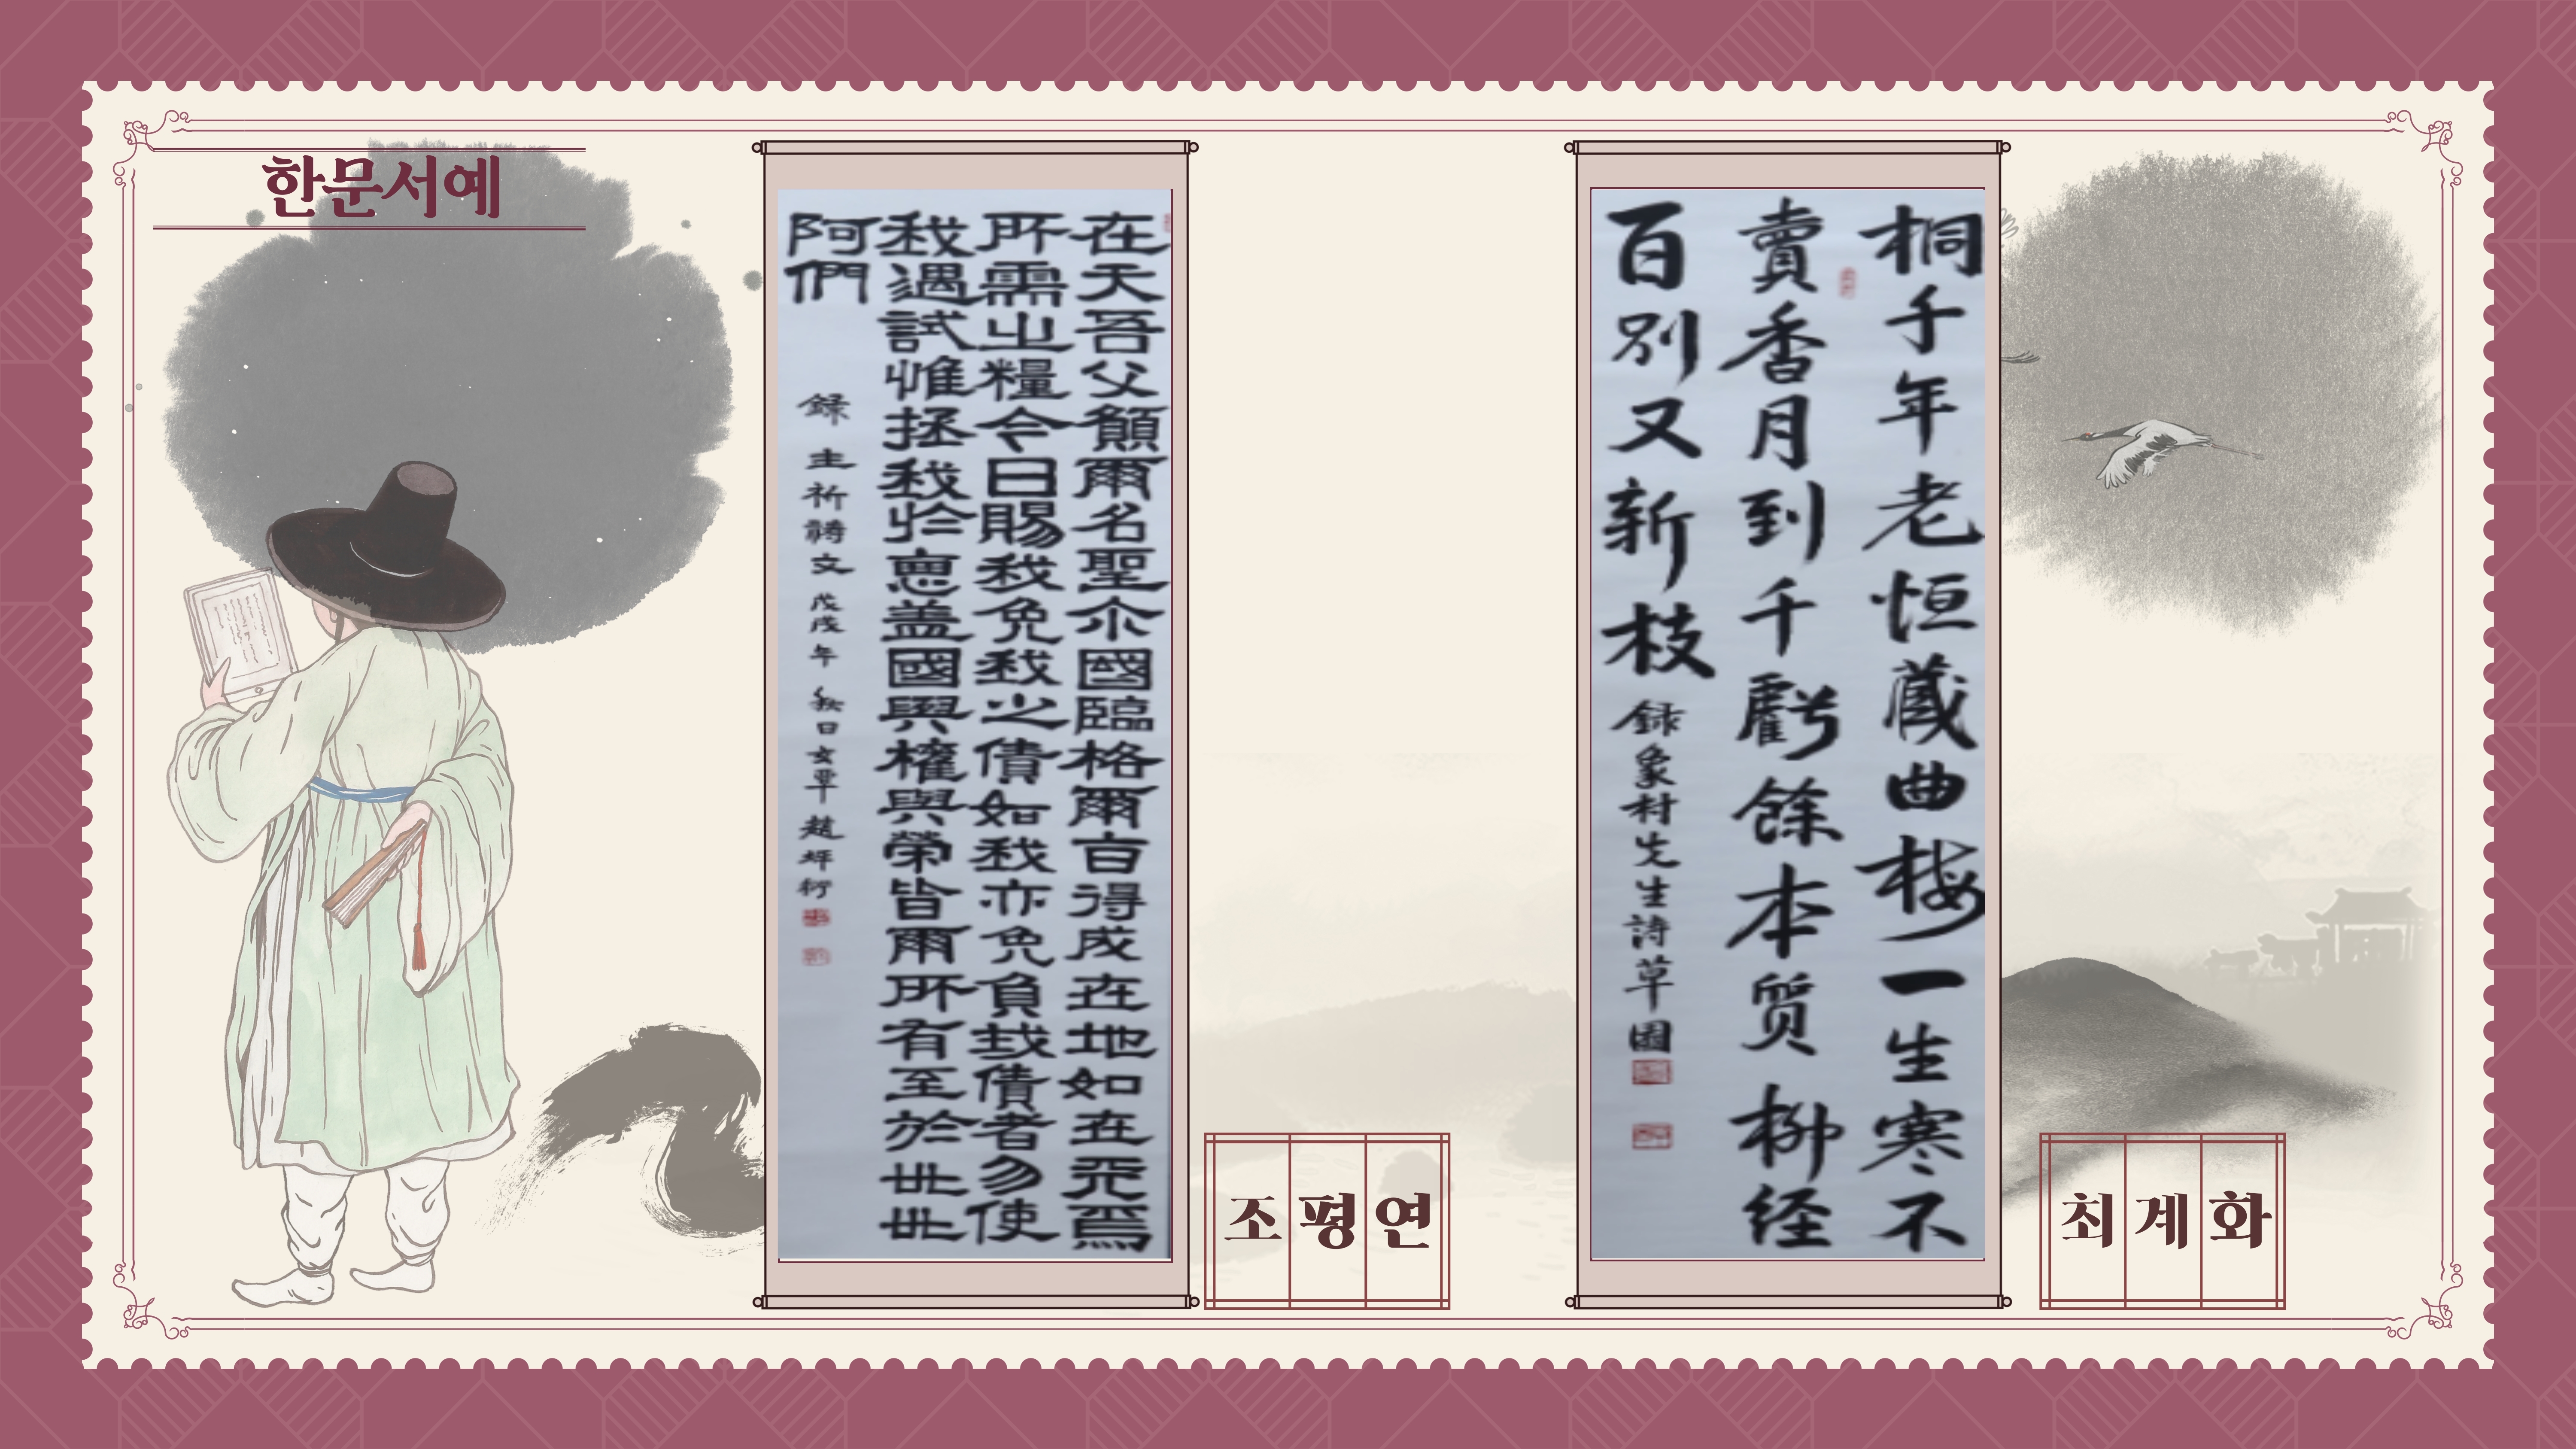 한문서예
在天吾父願爾名聖尒國臨格爾旨得成在地如在天焉
所需之糧今日賜我免我之債如我亦免負我債者勿使
我遇試惟拯我於惡蓋國與權與榮皆爾所有至於世世
阿們
録 主祈禱文 戊戌年 秋日 玄覃 趙坪衍
조평연
桐千年老恒藏曲梅一生寒不
賣香月到千虧餘本質柳経
百別又新枝
録象村先生詩 草園
최계화